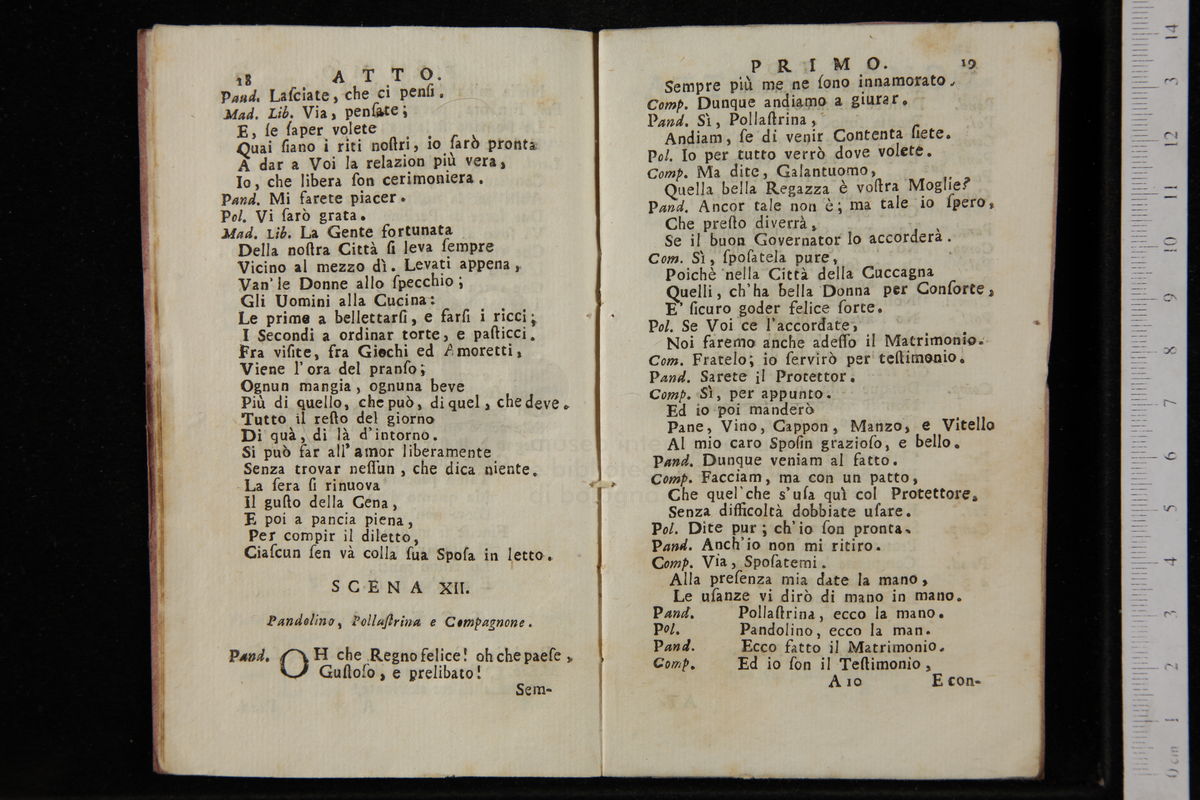 18 ATTO.
Pand. Laſciate, che ci penſi.
Mad. Lib. Via, penſate;
E, ſe ſaper volete
Quai ſiano i riti noſtri, io ſarò pronta
A dar a Voi la relazion più vera,
Io, che libera ſon cerimoniera.
Pand. Mi farete piacer.
Pol. Vi ſarò grata.
Mad. Lib. La Gente fortunata
Della noſtra Città ſi leva ſempre
Vicino al mezzo dì. Levati appena,
Van' le Donne allo ſpecchio;
Gli Uomini alla Cucina:
Le prime a bellettarſi, e farſi i ricci;
I Secondi a ordinar torte, e paſticci.
Fra viſite, fra Giochi ed Amoretti,
Viene l'ora del pranſo;
Ognun mangia, ognuna beve
Più di quello, che può, di quel, che deve.
Tutto il reſto del giorno
Di quà, di là d'intorno.
Si può far all'amor liberamente
Senza trovar neſſun, che dica niente.
La ſera ſi rinuova
Il guſto della Cena,
E poi a pancia piena,
Per compir il diletto,
Ciaſcun ſen và colla ſua Spoſa in letto.
SCENA XII.
Pandolino, Pollaſtrina e Compagnone.
Pand. OH che Regno felice! oh che paeſe,
Guſtoſo, e prelibato!
Sem-
PRIMO. 19
Sempre più me ne ſono innamorato.
Comp. Dunque andiamo a giurar.
Pand. Sì, Pollaſtrina,
Andiam, ſe di venir Contenta ſiete.
Pol. Io per tutto verrò dove volete.
Comp. Ma dite, Galantuomo,
Quella bella Regazza è voſtra Moglie?
Pand. Ancor tale non è; ma tale io ſpero,
Che preſto diverrà,
Se il buon Governator lo accorderà.
Com. Sì, ſpoſatela pure,
Poichè nella Città della Cuccagna
Quelli, ch'ha bella Donna per Conſorte,
E' ſicuro goder felice ſorte.
Pol. Se Voi ce l'accordate,
Noi faremo anche adeſſo il Matrimonio.
Com. Fratelo; io ſervirò per teſtimonio.
Pand. Sarete il Protettor.
Comp. Sì, per appunto.
Ed io poi manderò
Pane, Vino, Cappon, Manzo, e Vitello
Al mio caro Spoſin grazioſo, e bello.
Pand. Dunque veniam al fatto.
Comp. Facciam, ma con un patto,
Che quel che s'uſa quì col Protettore,
Senza difficoltà dobbiate uſare.
Pol. Dite pur; ch'io ſon pronta.
Pand. Anch'io non mi ritiro.
Comp. Via, Spoſatemi.
Alla preſenza mia date la mano,
Le uſanze vi dirò di mano in mano.
Pand. Pollaſtrina, ecco la mano.
Pol. Pandolino, ecco la man.
Pand. Ecco fatto il Matrimonio.
Comp. Ed io ſon il Teſtimonio,
A 10 E con-